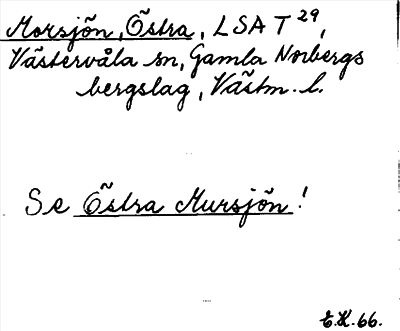 Morsjön, Östra, LSA T 29,
Västervåla sn, Gamla Norbergs
bergslag, Västm. l.
Se Östra Mursjön!
E.K. 66.